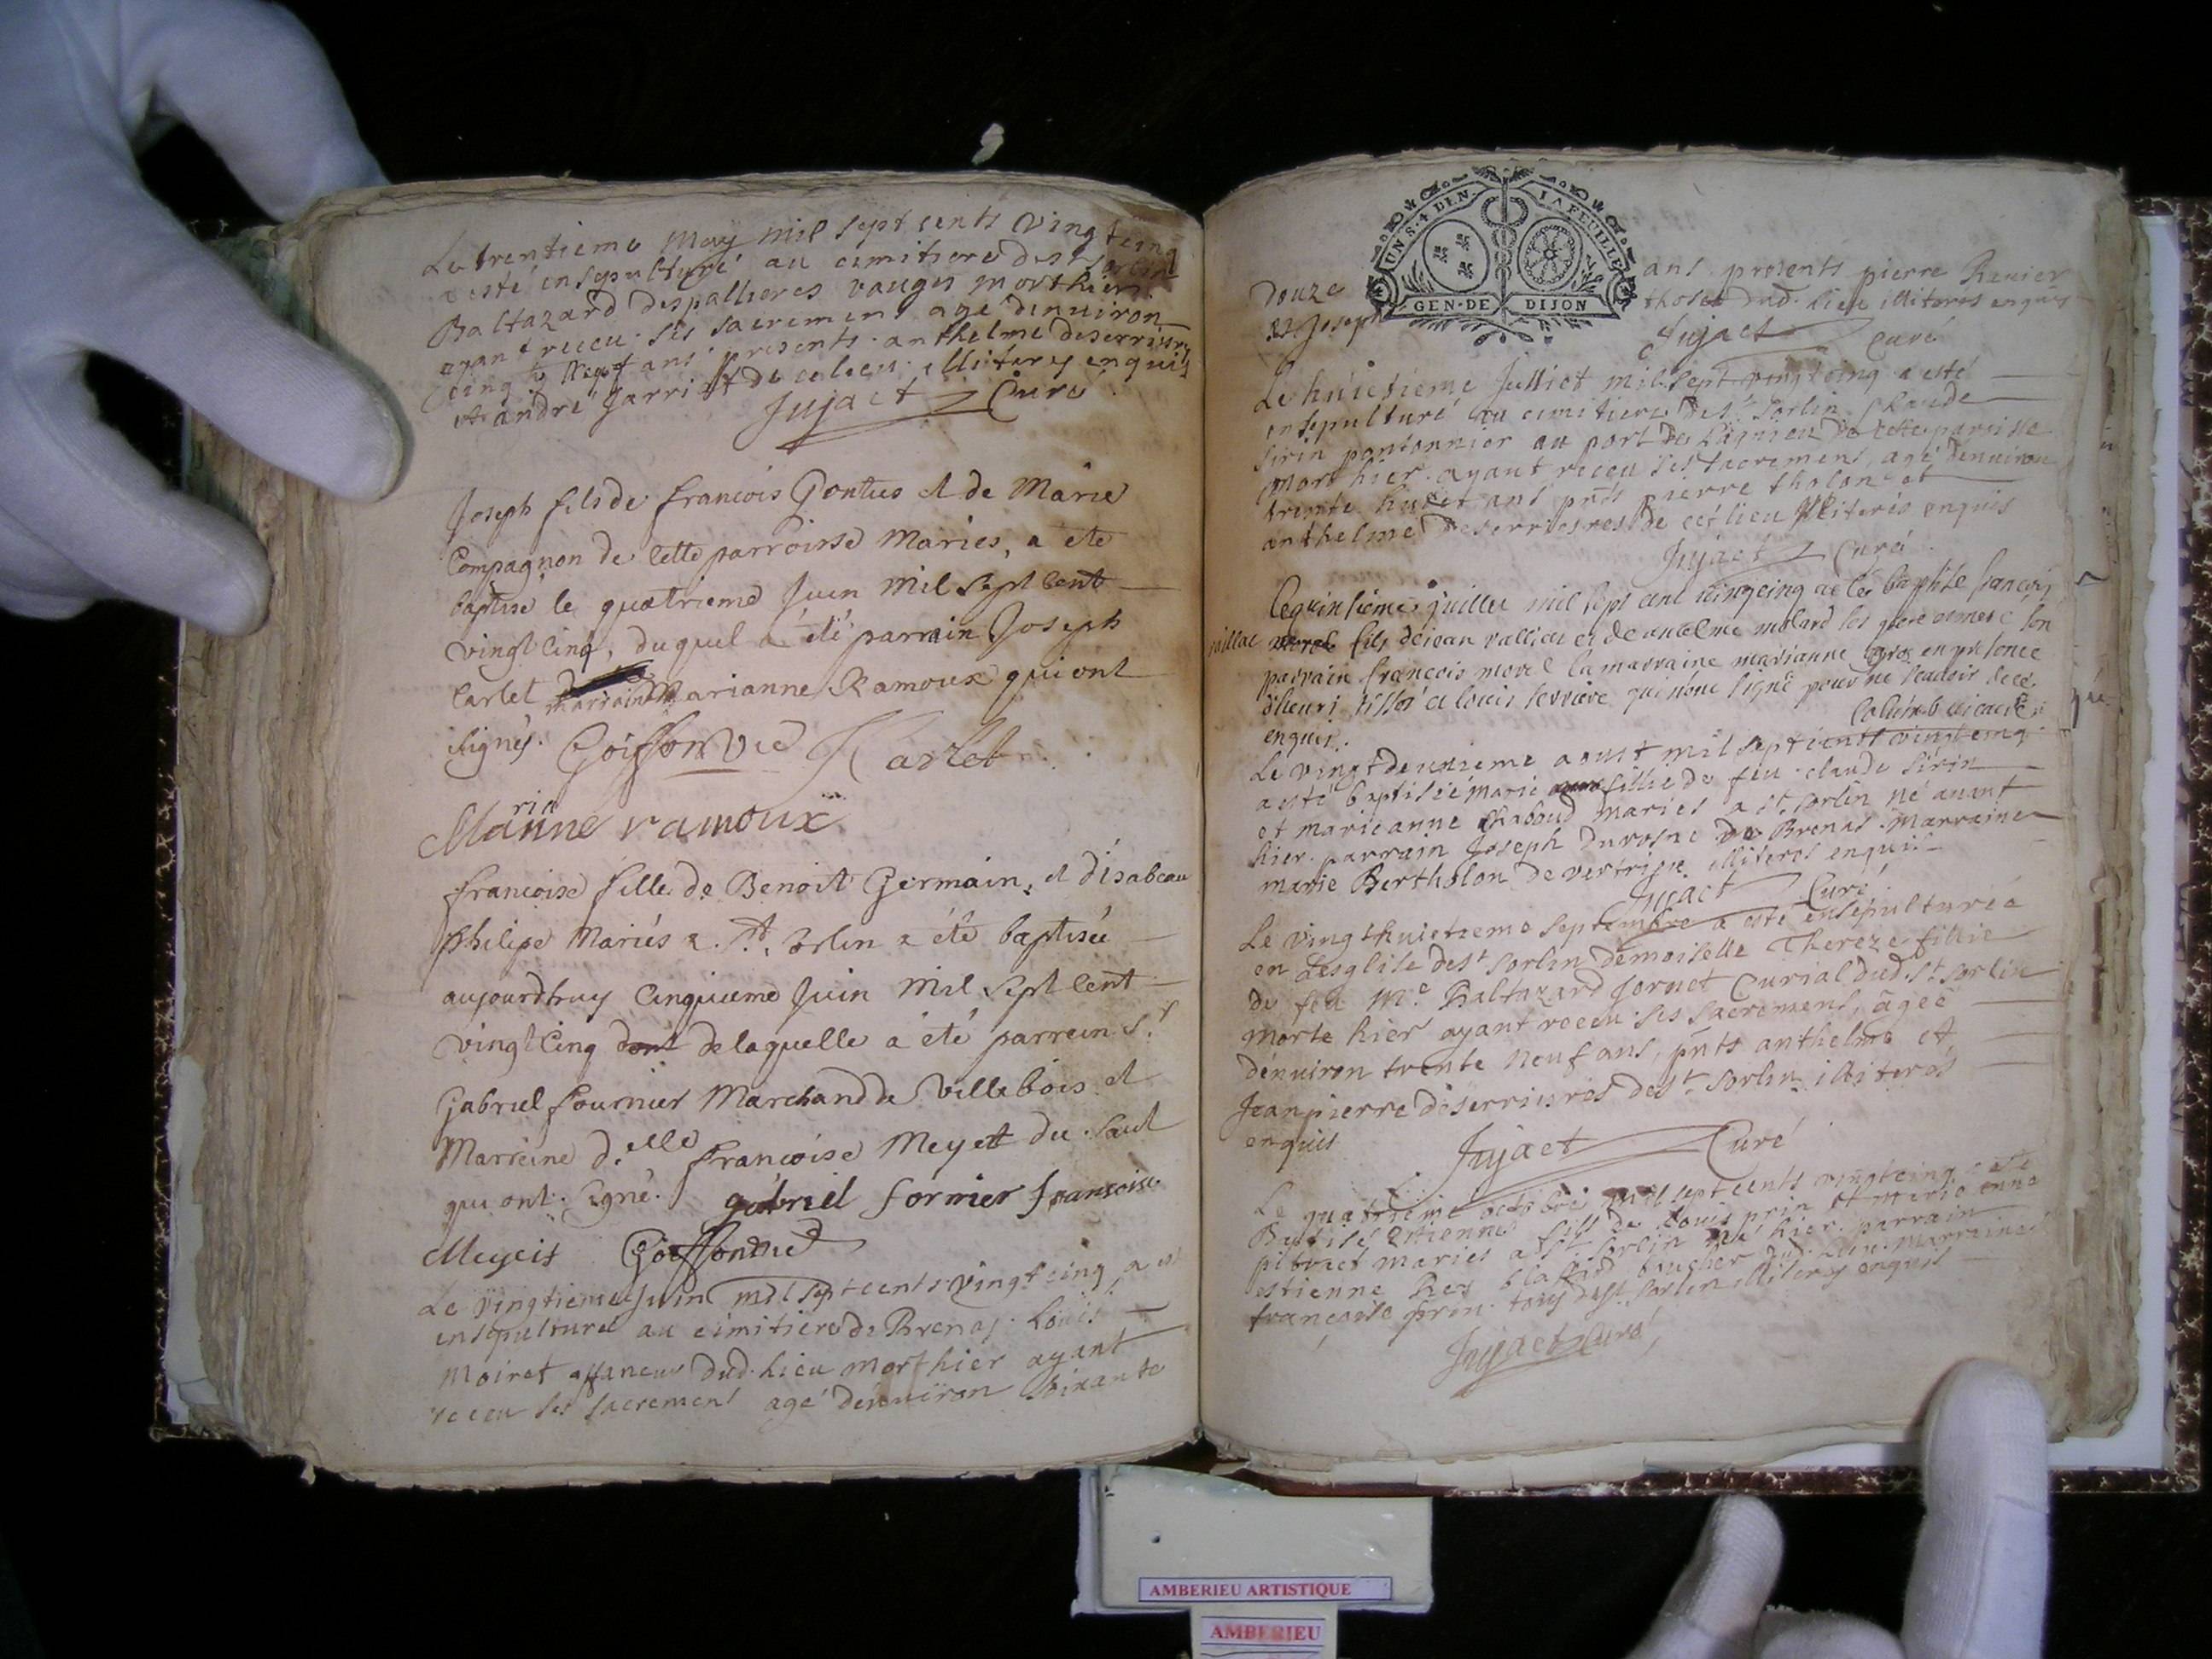 Le trentieme may mil sept cents vingt cinq
a esté ensepulturé au cimitiere de st sorlin
Baltazard despallieres mort hier
ayant receu ses sacremens agé denuiron
cinq neuf ans presents anthelme deserrieres
et andré Jarriot de ce lieu illiteres enquis
Jujact Curé
Joseph fils de francois Gontus et de Marie
Compagnon de cette parroisse Mariés, a eté
baptisé le quatrieme Juin Mil Sept Cent
vingt cinq, duquel a été parrain Joseph
Carlet marraine Marianne Ramoux qui ont
signés. Goiffon vic Karlet
Marianne ramoux
francoise fille de Benoit Germain, et d'isabeau
philipe Mariés a St. Sorlin a été baptisée
aujourdhuy Cinquieme Juin Mil Sept Cent
vingt Cinq dont de laquelle a été parrein Sr
Gabriel fournier Marchand de Villebois et
Marreine d.elle francoise Meyett du Saut
qui ont signé. gabriel fornier fransoise
Meyeis Goiffon vic
Le vingtieme Juin mil sept cents vingt cinq a esté
ensepulturé au cimitiere de Brenas Louis
Moiret affaneur dud. lieu mort hier ayant
receu ses sacremens agé denuiron soixante
UN S. 4 DEN. LA FEUILLE
GEN. DE DIJON
douze ans presents pierre Renier
et Joseph tholon dud. lieu illiteres enquis
Jujact Curé
Le huictieme Julliet mil sept vingt cinq a esté
ensepulturé au cimitiere de st Sorlin Claude
Sirin pontonnier au port de Lagnieu de cette parisse
mort hier ayant receu ses sacremens, agé denuiron
trente huict ans pnts pierre tholon et
anthelme deserrieres de cet lieu illiteres enquis
Jujact Curé
Le quinsieme juillet mil sept cent vingcinq a eté baptisé francois
vaillac fils de jean vallier et de anselme molard ses pere et mere son
parrain françois morel la marraine marianne gros en presence
d'henri tissot et louis serriere qui n'ont signé pour ne scauoir de ce
enquis. Colomb vicaire
Le vingtdeuxieme aoust mil sept cents vingt cinq
a esté baptisée marie fillie de feu claude Sirin
et marie anne Chaboud mariés a st. sorlin né auant
hier. parrain Joseph durosne de Brenas marraine
marie Bertholon de vertrieu illiteres enquis
Jujact Curé
Le vingt huictieme septembre a esté ensepulturée
en Lesglise de st sorlin demoiselle Thereze fillie
de feu Me. Baltazard Jornet Curial dud. st sorlin
morte hier ayant receu ses sacremens, agée
denuiron trente neuf ans, pnts anthelme et
Jeanpierre deserrieres de st sorlin illiteres
enquis
Jujact Curé
Le quatrieme octobre mil sept cents vingt cinq a esté
Baptisé Estienne fils de Louis prin et marie anne
pitract mariés a st. sorlin né hier. parrain
estienne Rey boucher dud. lieu. marraine
francoise prin. tous de st. sorlin illiteres enquis
Jujact Curé
AMBERIEU ARTISTIQUE
AMBERIEU